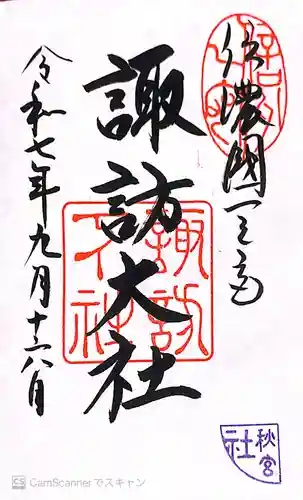 信濃國一之宮
諏訪大社
令和七年九月十六日
諏訪大社
秋宮
社
CS CamScanner でスキャン